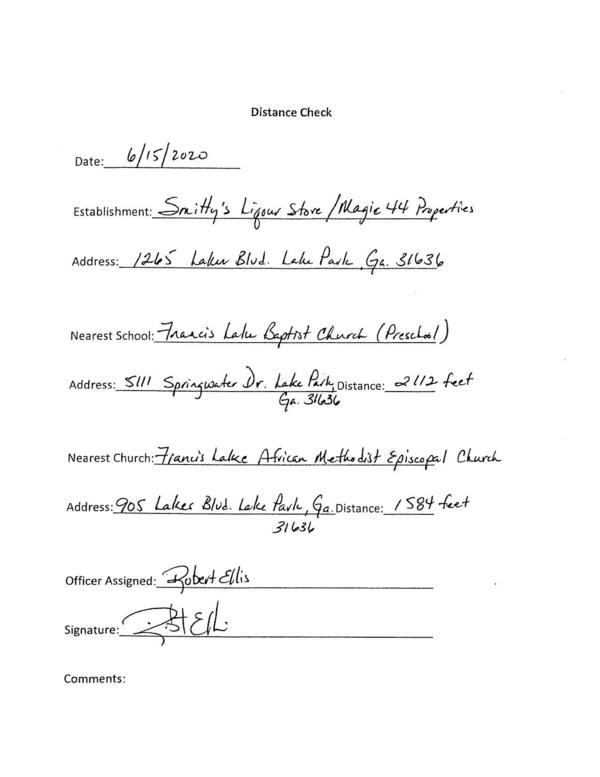 Distance Check
Date: 6/15/2020
Establishment: Smitty's Liqour Store / Magic 44 Properties
Address: 1265 Lakes Blvd. Lake Park, Ga. 31636
Nearest School: Francis Lake Baptist Church (Preschool)
Address: 5111 Springwater Dr. Lake Park, Distance: 2112 feet
Ga. 31636
Nearest Church: Francis Lake African Methodist Episcopal Church
Address: 905 Lakes Blvd. Lake Park, Ga. Distance: 1584 feet
31636
Officer Assigned: Robert Ellis
Signature:
Comments: